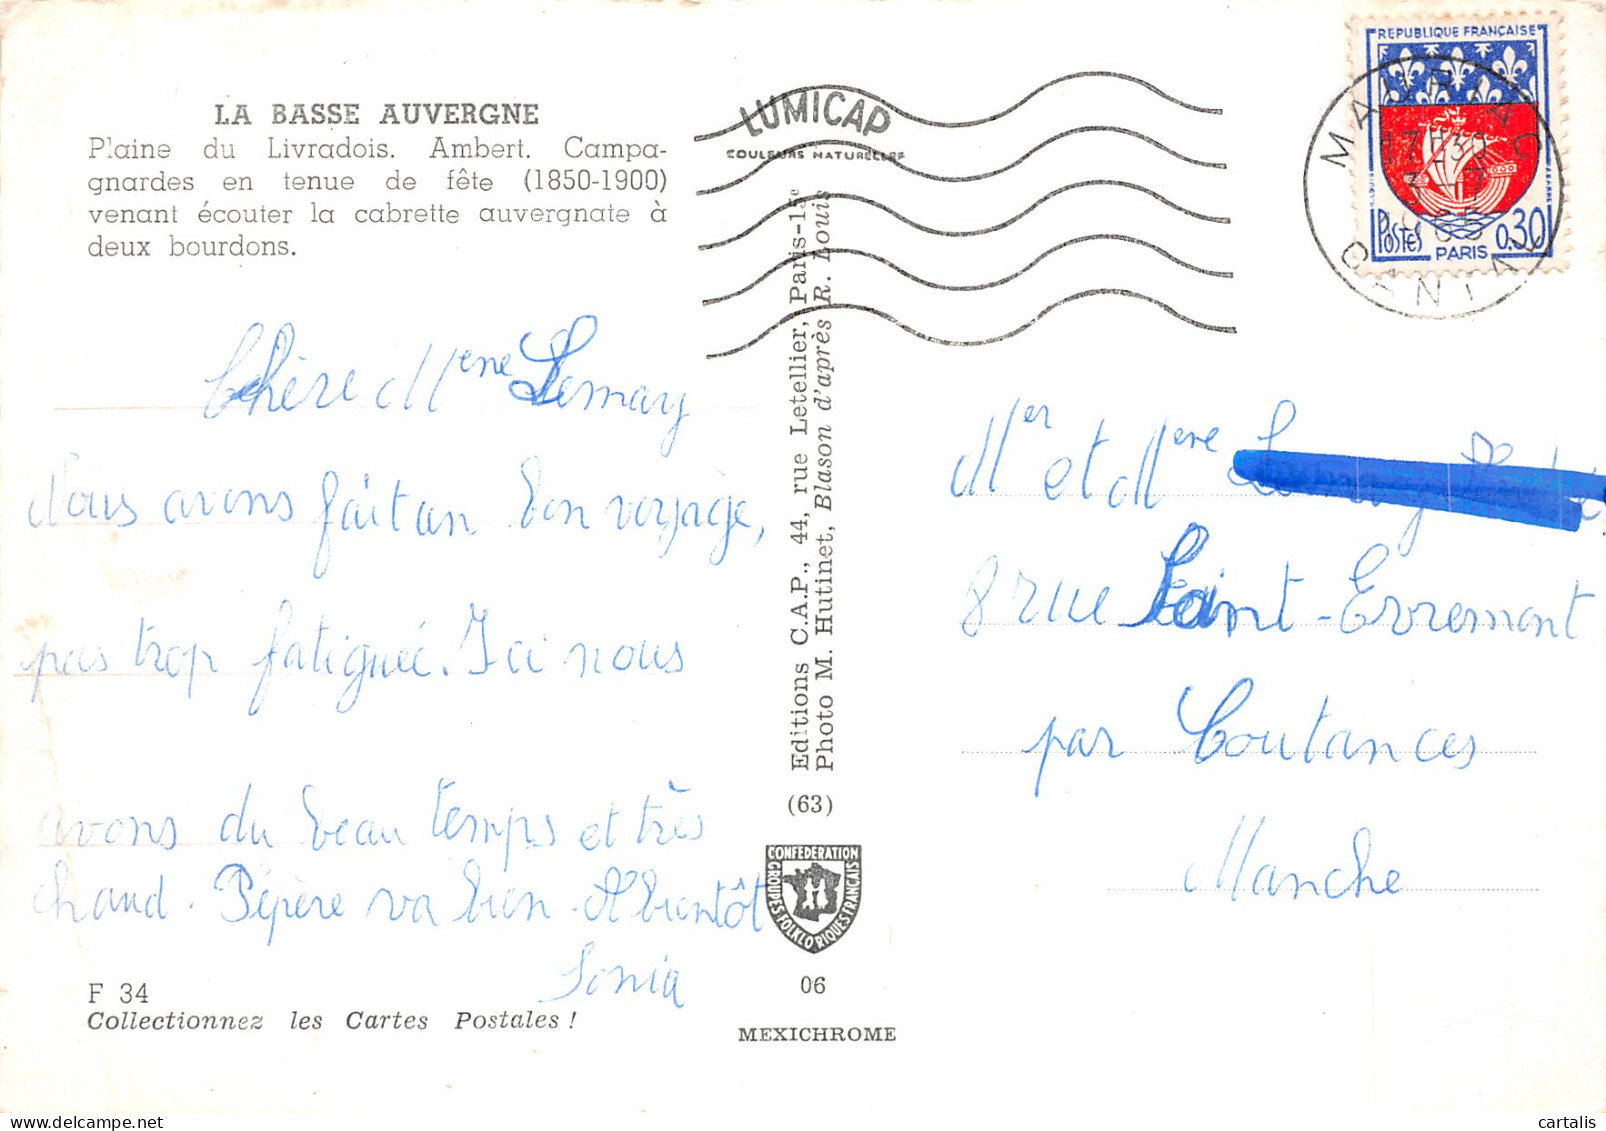 LA BASSE AUVERGNE
Plaine du Livradois. Ambert. Campa-
gnardes en tenue de fête (1850-1900)
venant écouter la cabrette auvergnate à
deux bourdons.
Chère Mme Lemay
Nous avons fait un bon voyage,
pas trop fatiguée. Ici nous
avons du beau temps et très
chaud. Pépère va bien. A bientôt
Sonia
F 34
Collectionnez les Cartes Postales !
LUMICAP
COULEURS NATURELLES
Editions C.A.P., 44, rue Letellier, Paris-15e
Photo M. Hutinet, Blason d'après R. Louis
(63)
CONFEDERATION
GROUPES FOLKLORIQUES FRANÇAIS
06
MEXICHROME
REPUBLIQUE FRANÇAISE
POSTES
PARIS
0,30
MAURIAC
17H30
3-7
CANTAL
Mer et Mme
8 rue Saint-Evremont
par Coutances
Manche
cartalis